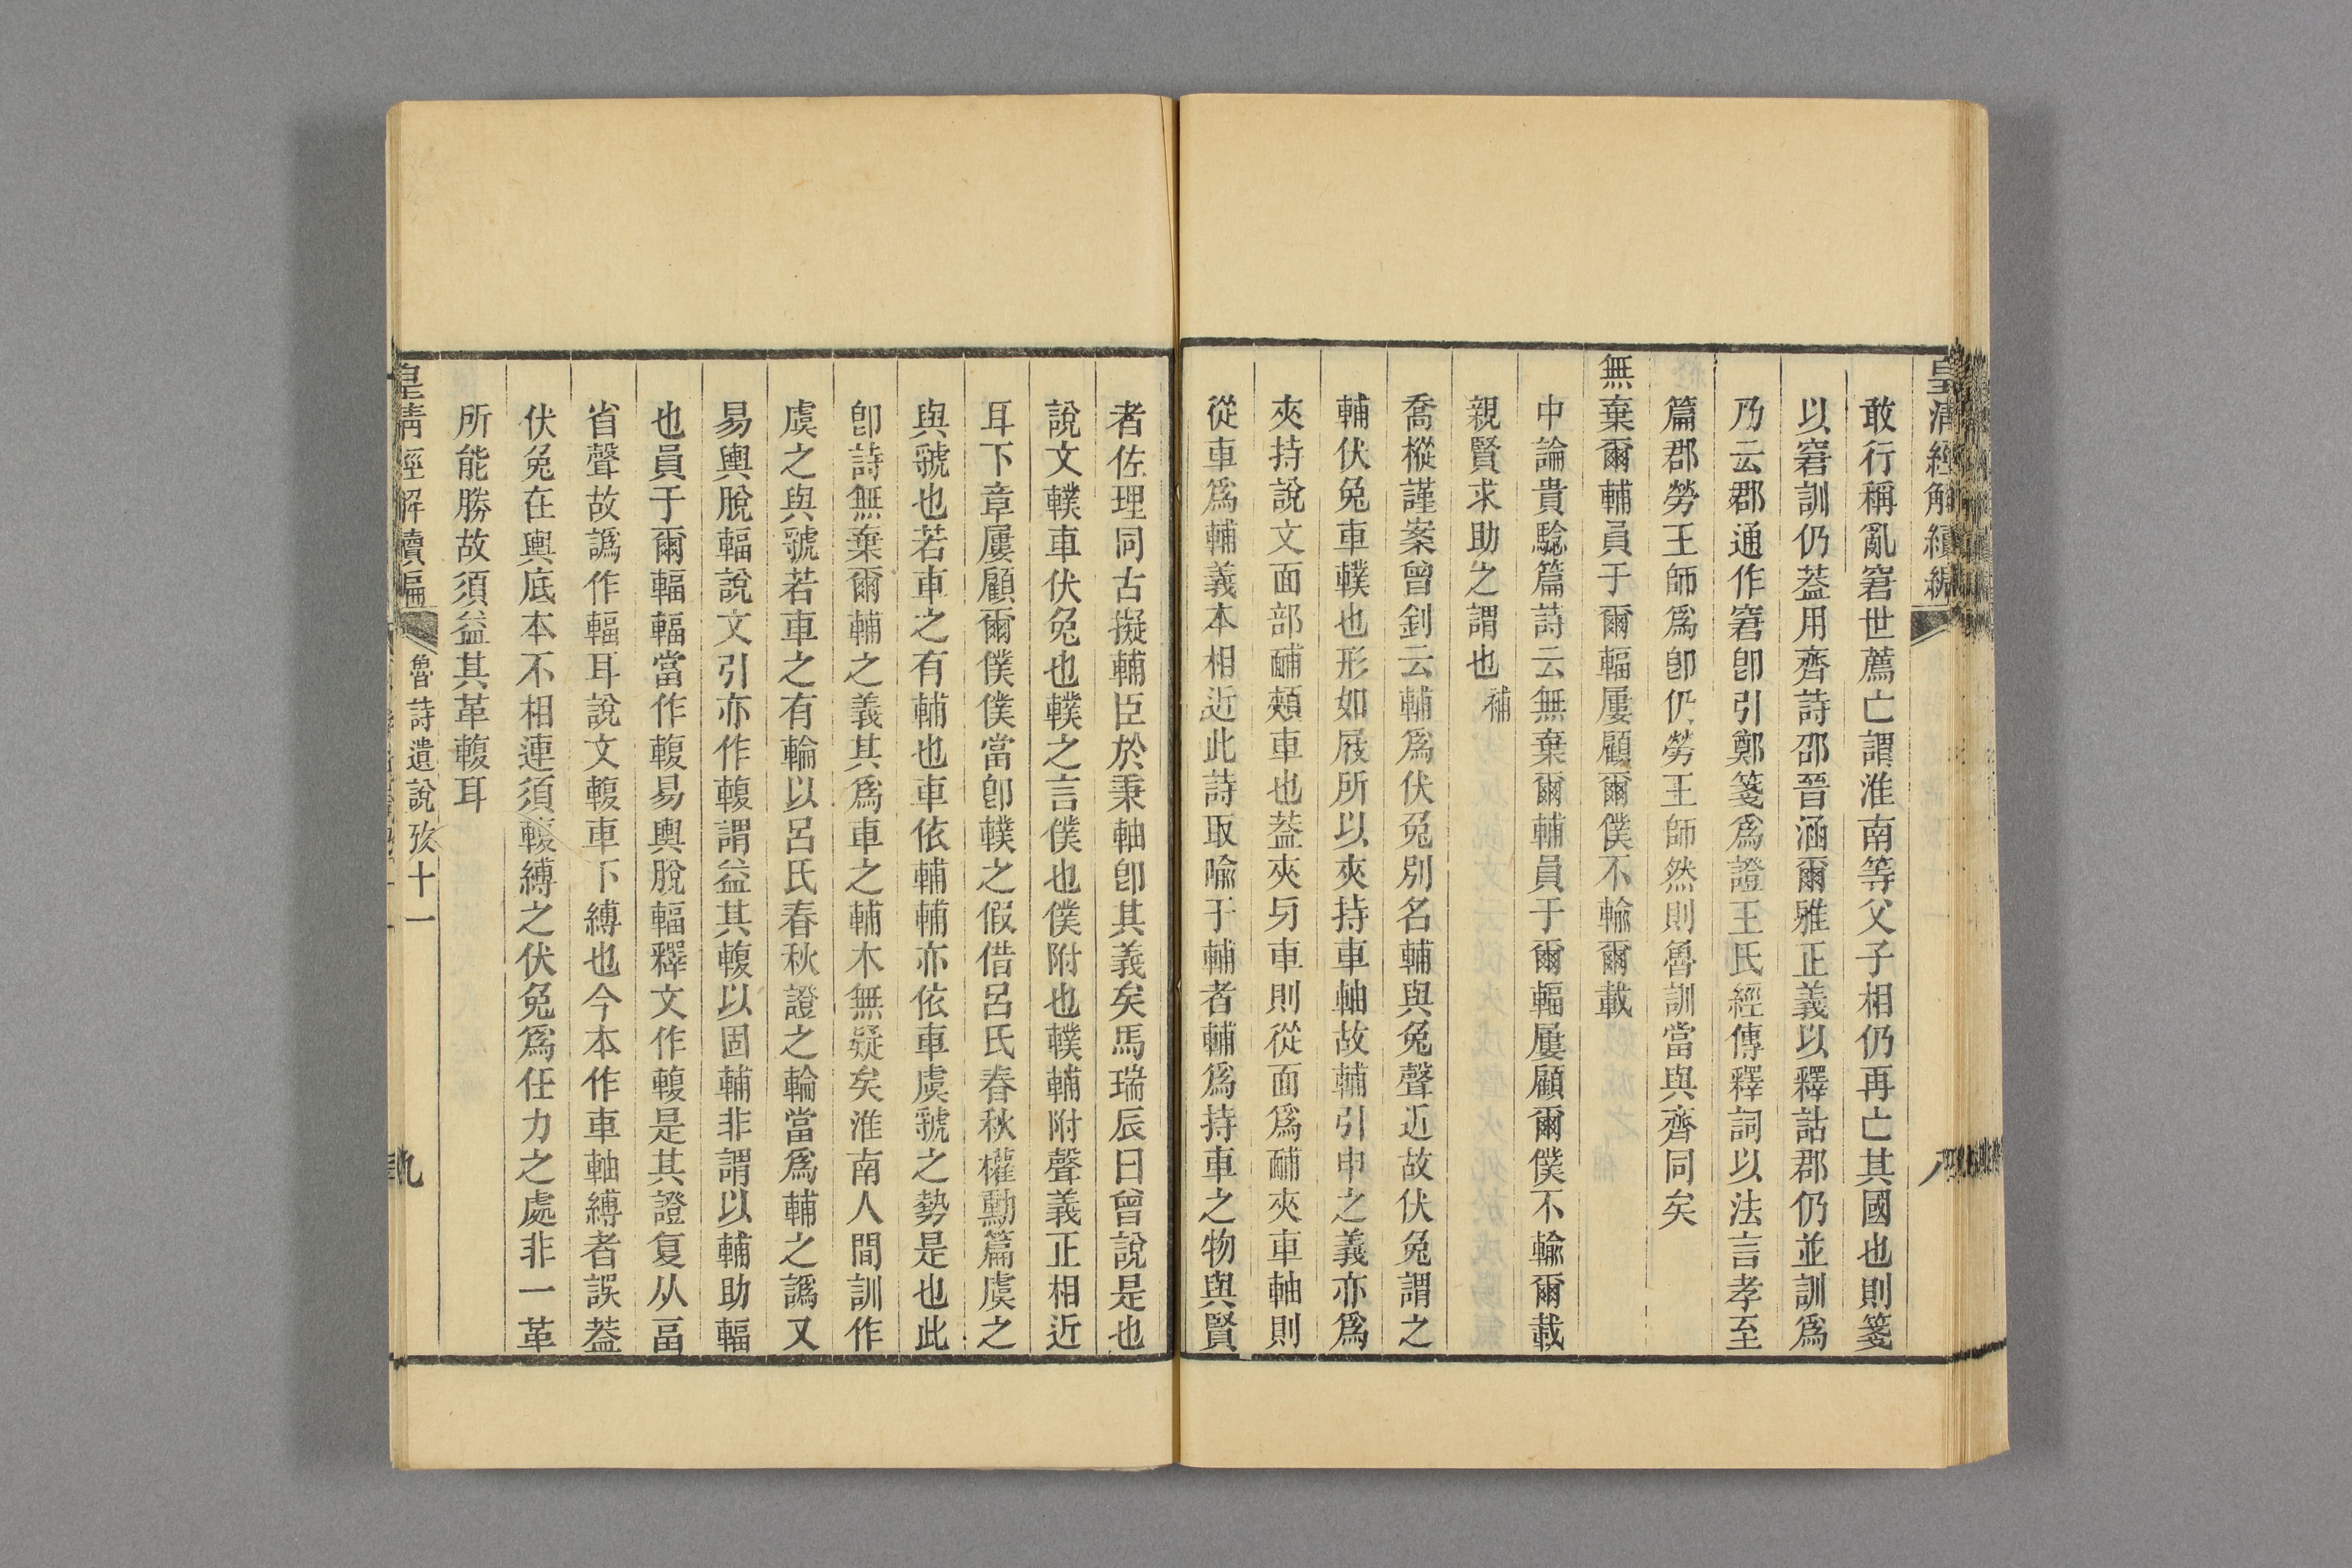 皇清經解續編
八
敢行稱亂窘世薦亡謂淮南等父子相仍再亡其國也則箋
以窘訓仍葢用齊詩邵晉涵爾雅正義以釋詁郡仍並訓爲
乃云郡通作窘卽引鄭箋爲證王氏經傳釋詞以法言孝至
篇郡勞王師爲卽仍勞王師然則魯訓當與齊同矣
無棄爾輔員于爾輻屢顧爾僕不輸爾載
中論貴驗篇詩云無棄爾輔員于爾輻屢顧爾僕不輸爾載
親賢求助之謂也補
喬樅謹案曾釗云輔爲伏兔別名輔與兔聲近故伏兔謂之
輔伏兔車轐也形如屐所以夾持車軸故輔引申之義亦爲
夾持說文面部䩉頰車也葢夾牙車則從面爲䩉夾車軸則
從車爲輔義本相近此詩取喻于輔者輔爲持車之物與賢
者佐理同古擬輔臣於秉軸卽其義矣馬瑞辰曰曾說是也
說文轐車伏兔也轐之言僕也僕附也轐輔附聲義正相近
耳下章屢顧爾僕僕當卽轐之假借呂氏春秋權勳篇虞之
與虢也若車之有輔也車依輔輔亦依車虞虢之勢是也此
卽詩無棄爾輔之義其爲車之輔木無疑矣淮南人閒訓作
虞之與虢若車之有輪以呂氏春秋證之輪當爲輔之譌又
易輿脫輻說文引亦作輹謂益其輹以固輔非謂以輔助輻
也員于爾輻輻當作輹易輿脫輻釋文作輹是其證复从畐
省聲故譌作輻耳說文輹車下縛也今本作車軸縛者誤葢
伏兔在輿底本不相連須輹縛之伏兔爲任力之處非一革
所能勝故須益其革輹耳
皇清經解續編
魯詩遺說攷十一
九